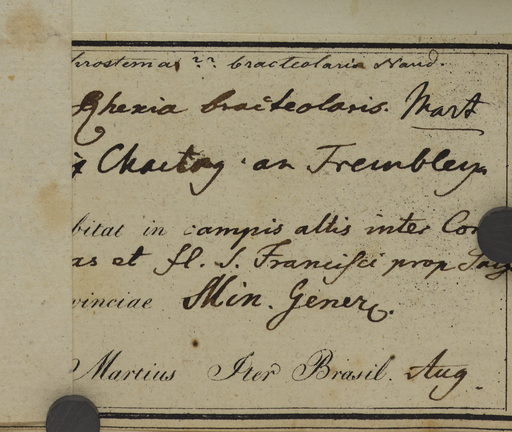 hrostema ?? bracteolaris Naud.
Rhexia bracteolaris. Mart
Chaetog. an Trembleya
bitat in campis altis inter Con
as et fl. S. Francisci prop
vinciae Min. Gener.
Martius Iter Brasil. Aug.